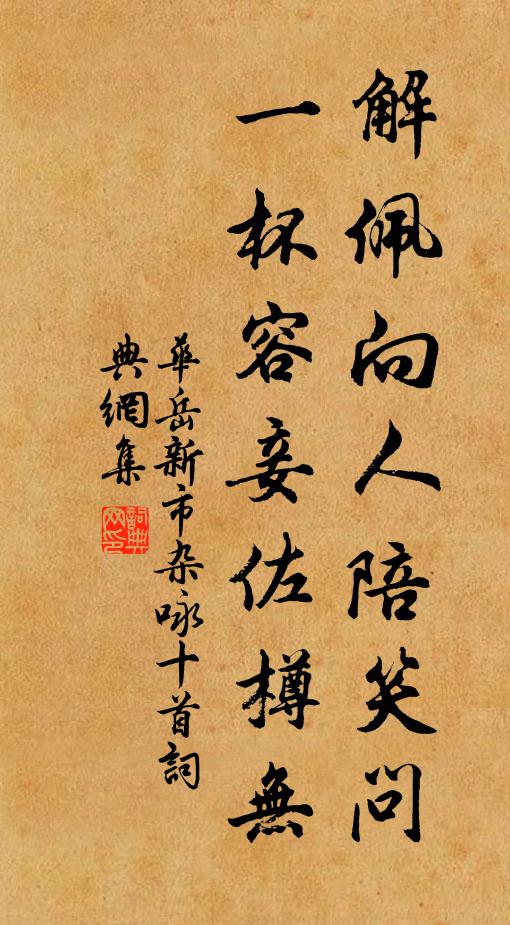 解佩向人陪笑问
一杯容妾佐樽無
華岳新市杂咏十首詞
典網集
詞典
网印